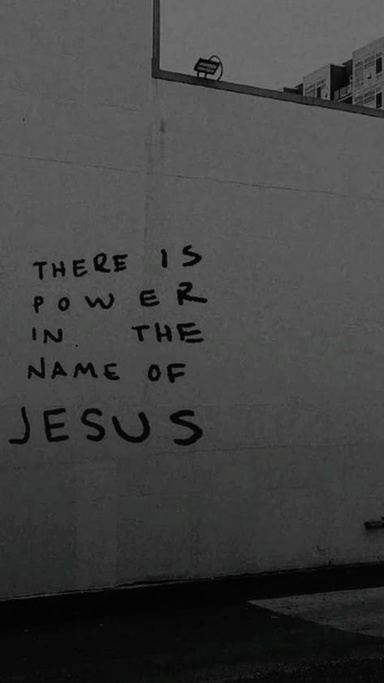 THERE IS
POWER
IN THE
NAME OF
JESUS